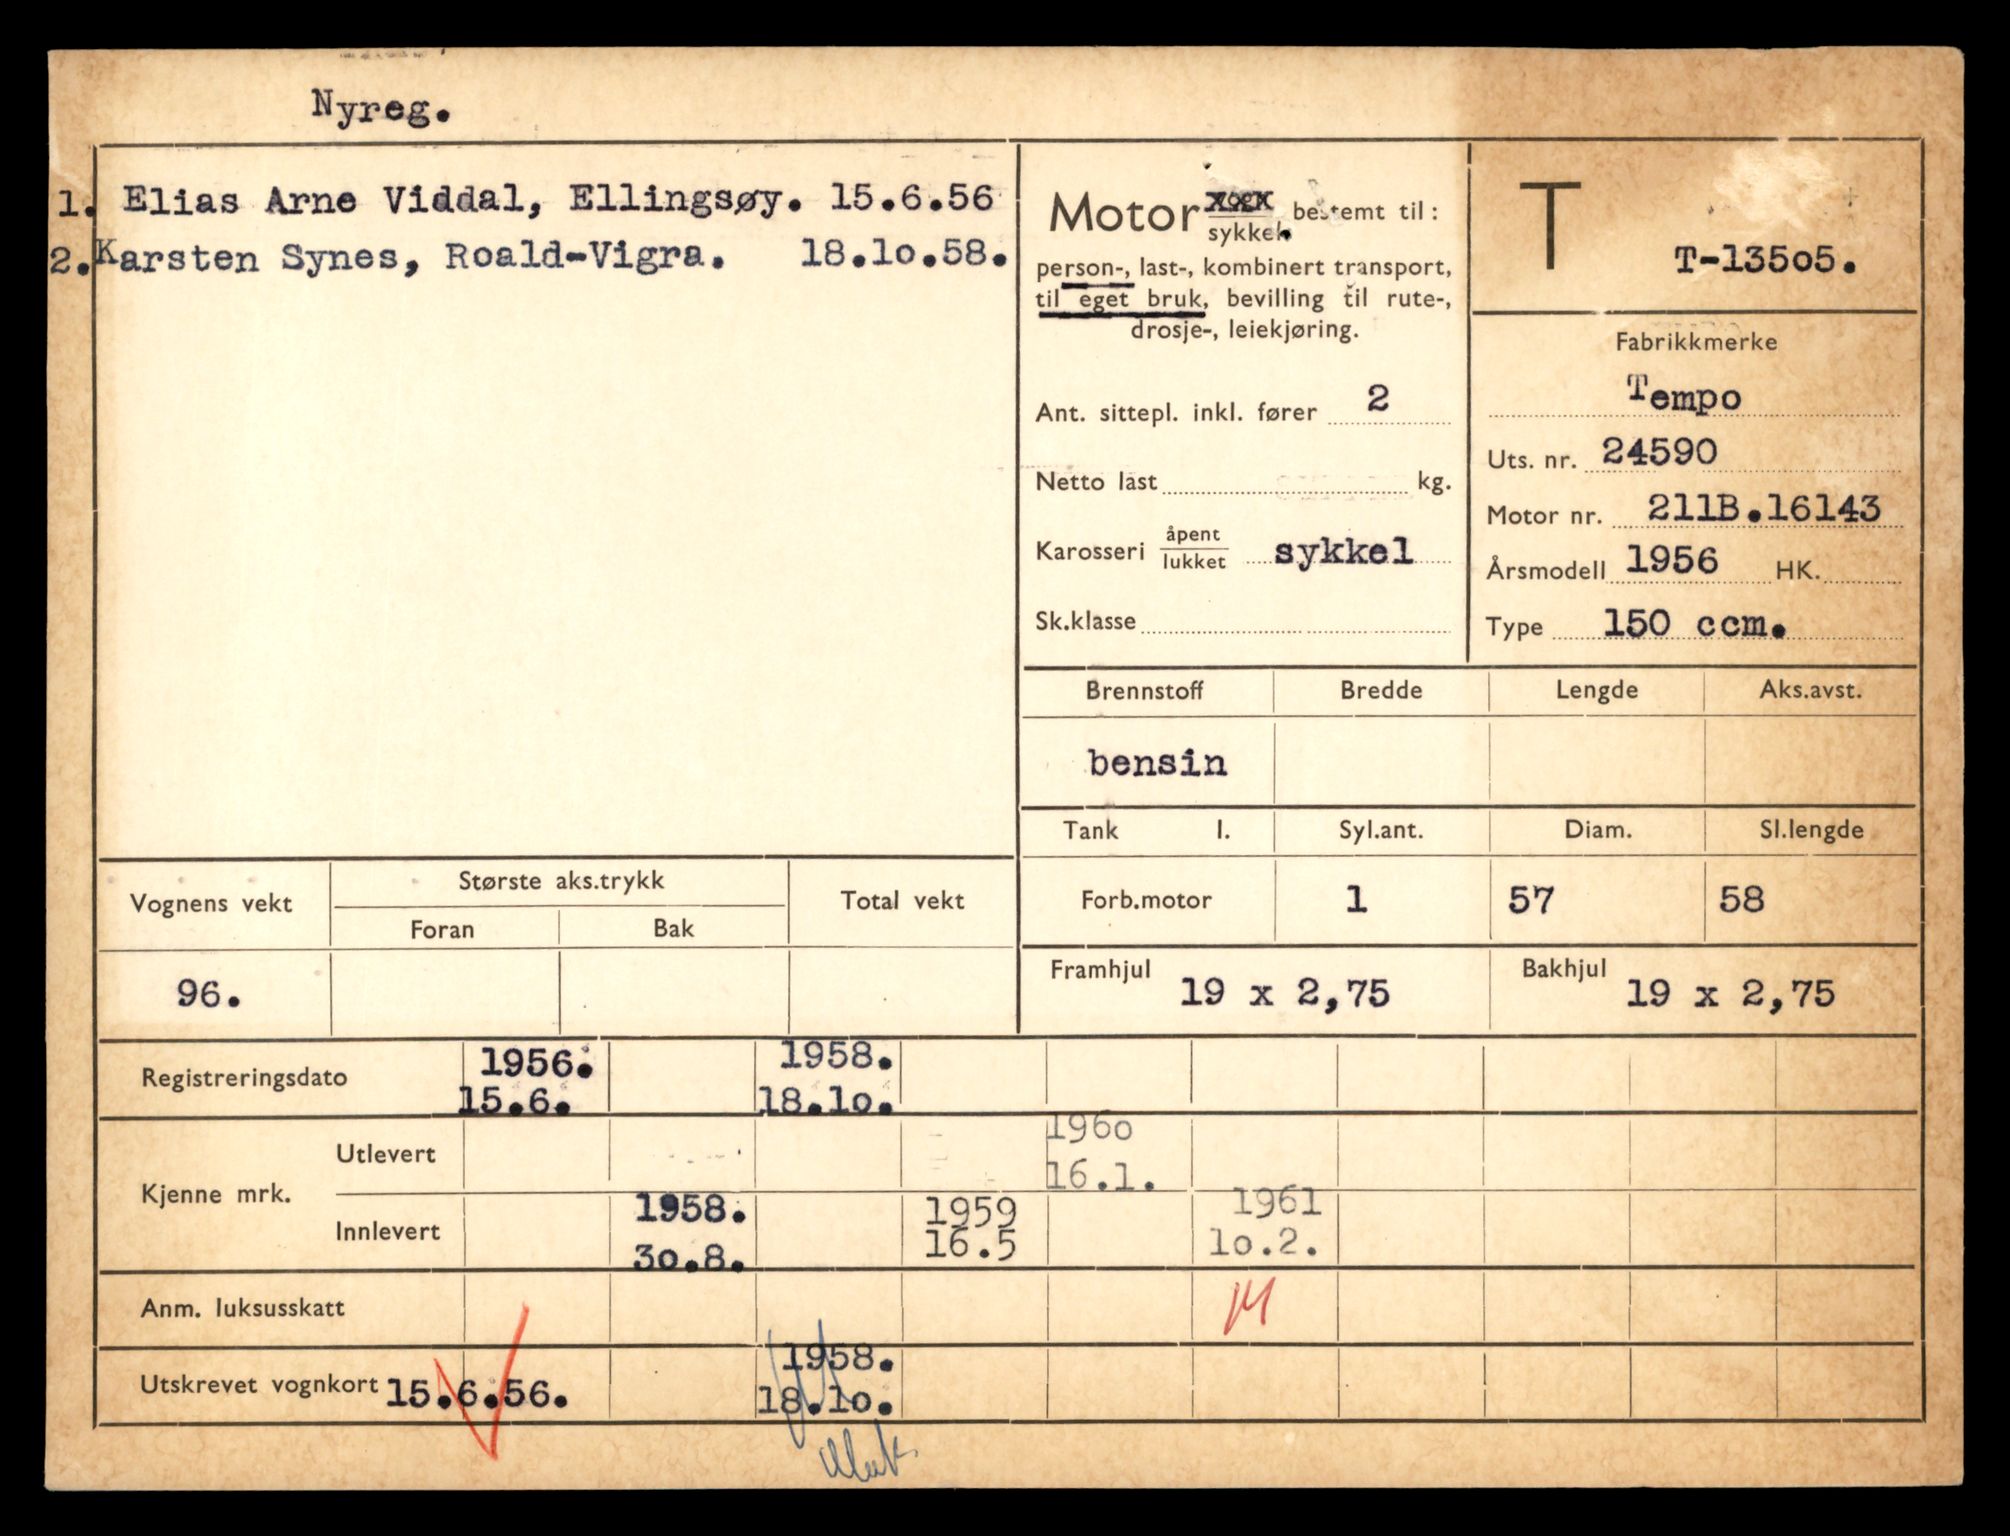 Nyreg.
1. Elias Arne Viddal, Ellingsøy. 15.6.56
2. Karsten Synes, Roald-Vigra. 18.10.58.
Motor vogn
sykkel. bestemt til:
person-, last-, kombinert transport,
til eget bruk, bevilling til rute-,
drosje-, leiekjøring.
Ant. sittepl. inkl. fører 2
Netto last kg.
Karosseri åpent
lukket sykkel
Sk.klasse
T T-13505.
Fabrikkmerke
Tempo
Uts. nr. 24590
Motor nr. 211B.16143
Årsmodell 1956 HK.
Type 150 ccm.
Brennstoff Bredde Lengde Aks.avst.
bensin
Tank l. Syl.ant. Diam. Sl.lengde
Forb.motor 1 57 58
Framhjul 19 x 2,75 Bakhjul 19 x 2,75
Vognens vekt Største aks.trykk Total vekt
Foran Bak
96.
Registreringsdato 1956. 1958.
15.6. 18.10.
Kjenne mrk. Utlevert 1960
16.1.
Innlevert 1958. 1959 1961
30.8. 16.5 10.2.
Anm. luksusskatt
Utskrevet vognkort 15.6.56. 1958.
18.10.